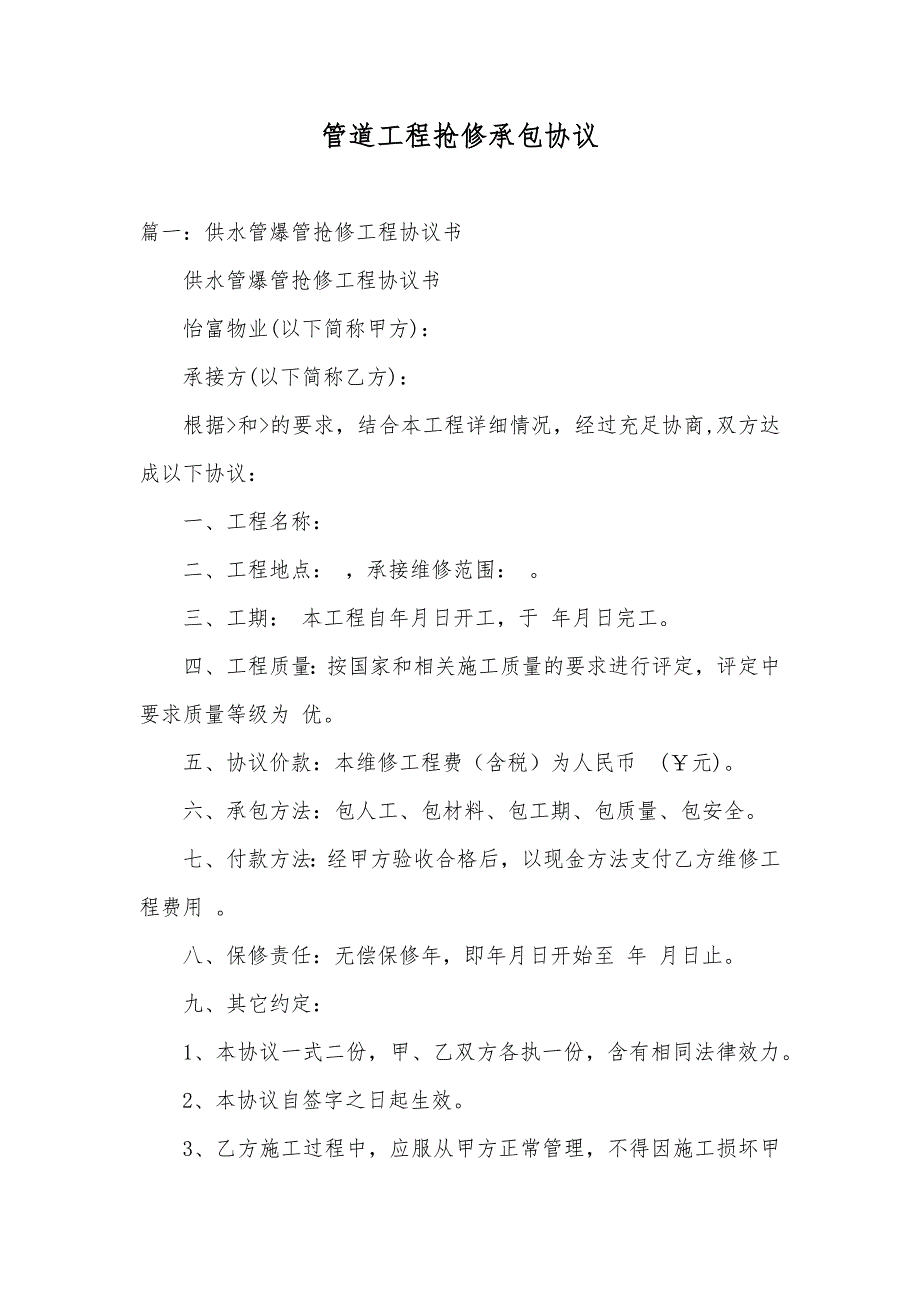 管道工程抢修承包协议
篇一：供水管爆管抢修工程协议书
供水管爆管抢修工程协议书
怡富物业(以下简称甲方)：
承接方(以下简称乙方)：
根据>和>的要求，结合本工程详细情况，经过充足协商,双方达
成以下协议：
一、工程名称：
二、工程地点： ，承接维修范围： 。
三、工期： 本工程自年月日开工，于 年月日完工。
四、工程质量：按国家和相关施工质量的要求进行评定，评定中
要求质量等级为 优。
五、协议价款：本维修工程费（含税）为人民币 (￥元)。
六、承包方法：包人工、包材料、包工期、包质量、包安全。
七、付款方法：经甲方验收合格后，以现金方法支付乙方维修工
程费用 。
八、保修责任：无偿保修年，即年月日开始至 年 月日止。
九、其它约定：
1、本协议一式二份，甲、乙双方各执一份，含有相同法律效力。
2、本协议自签字之日起生效。
3、乙方施工过程中，应服从甲方正常管理，不得因施工损坏甲